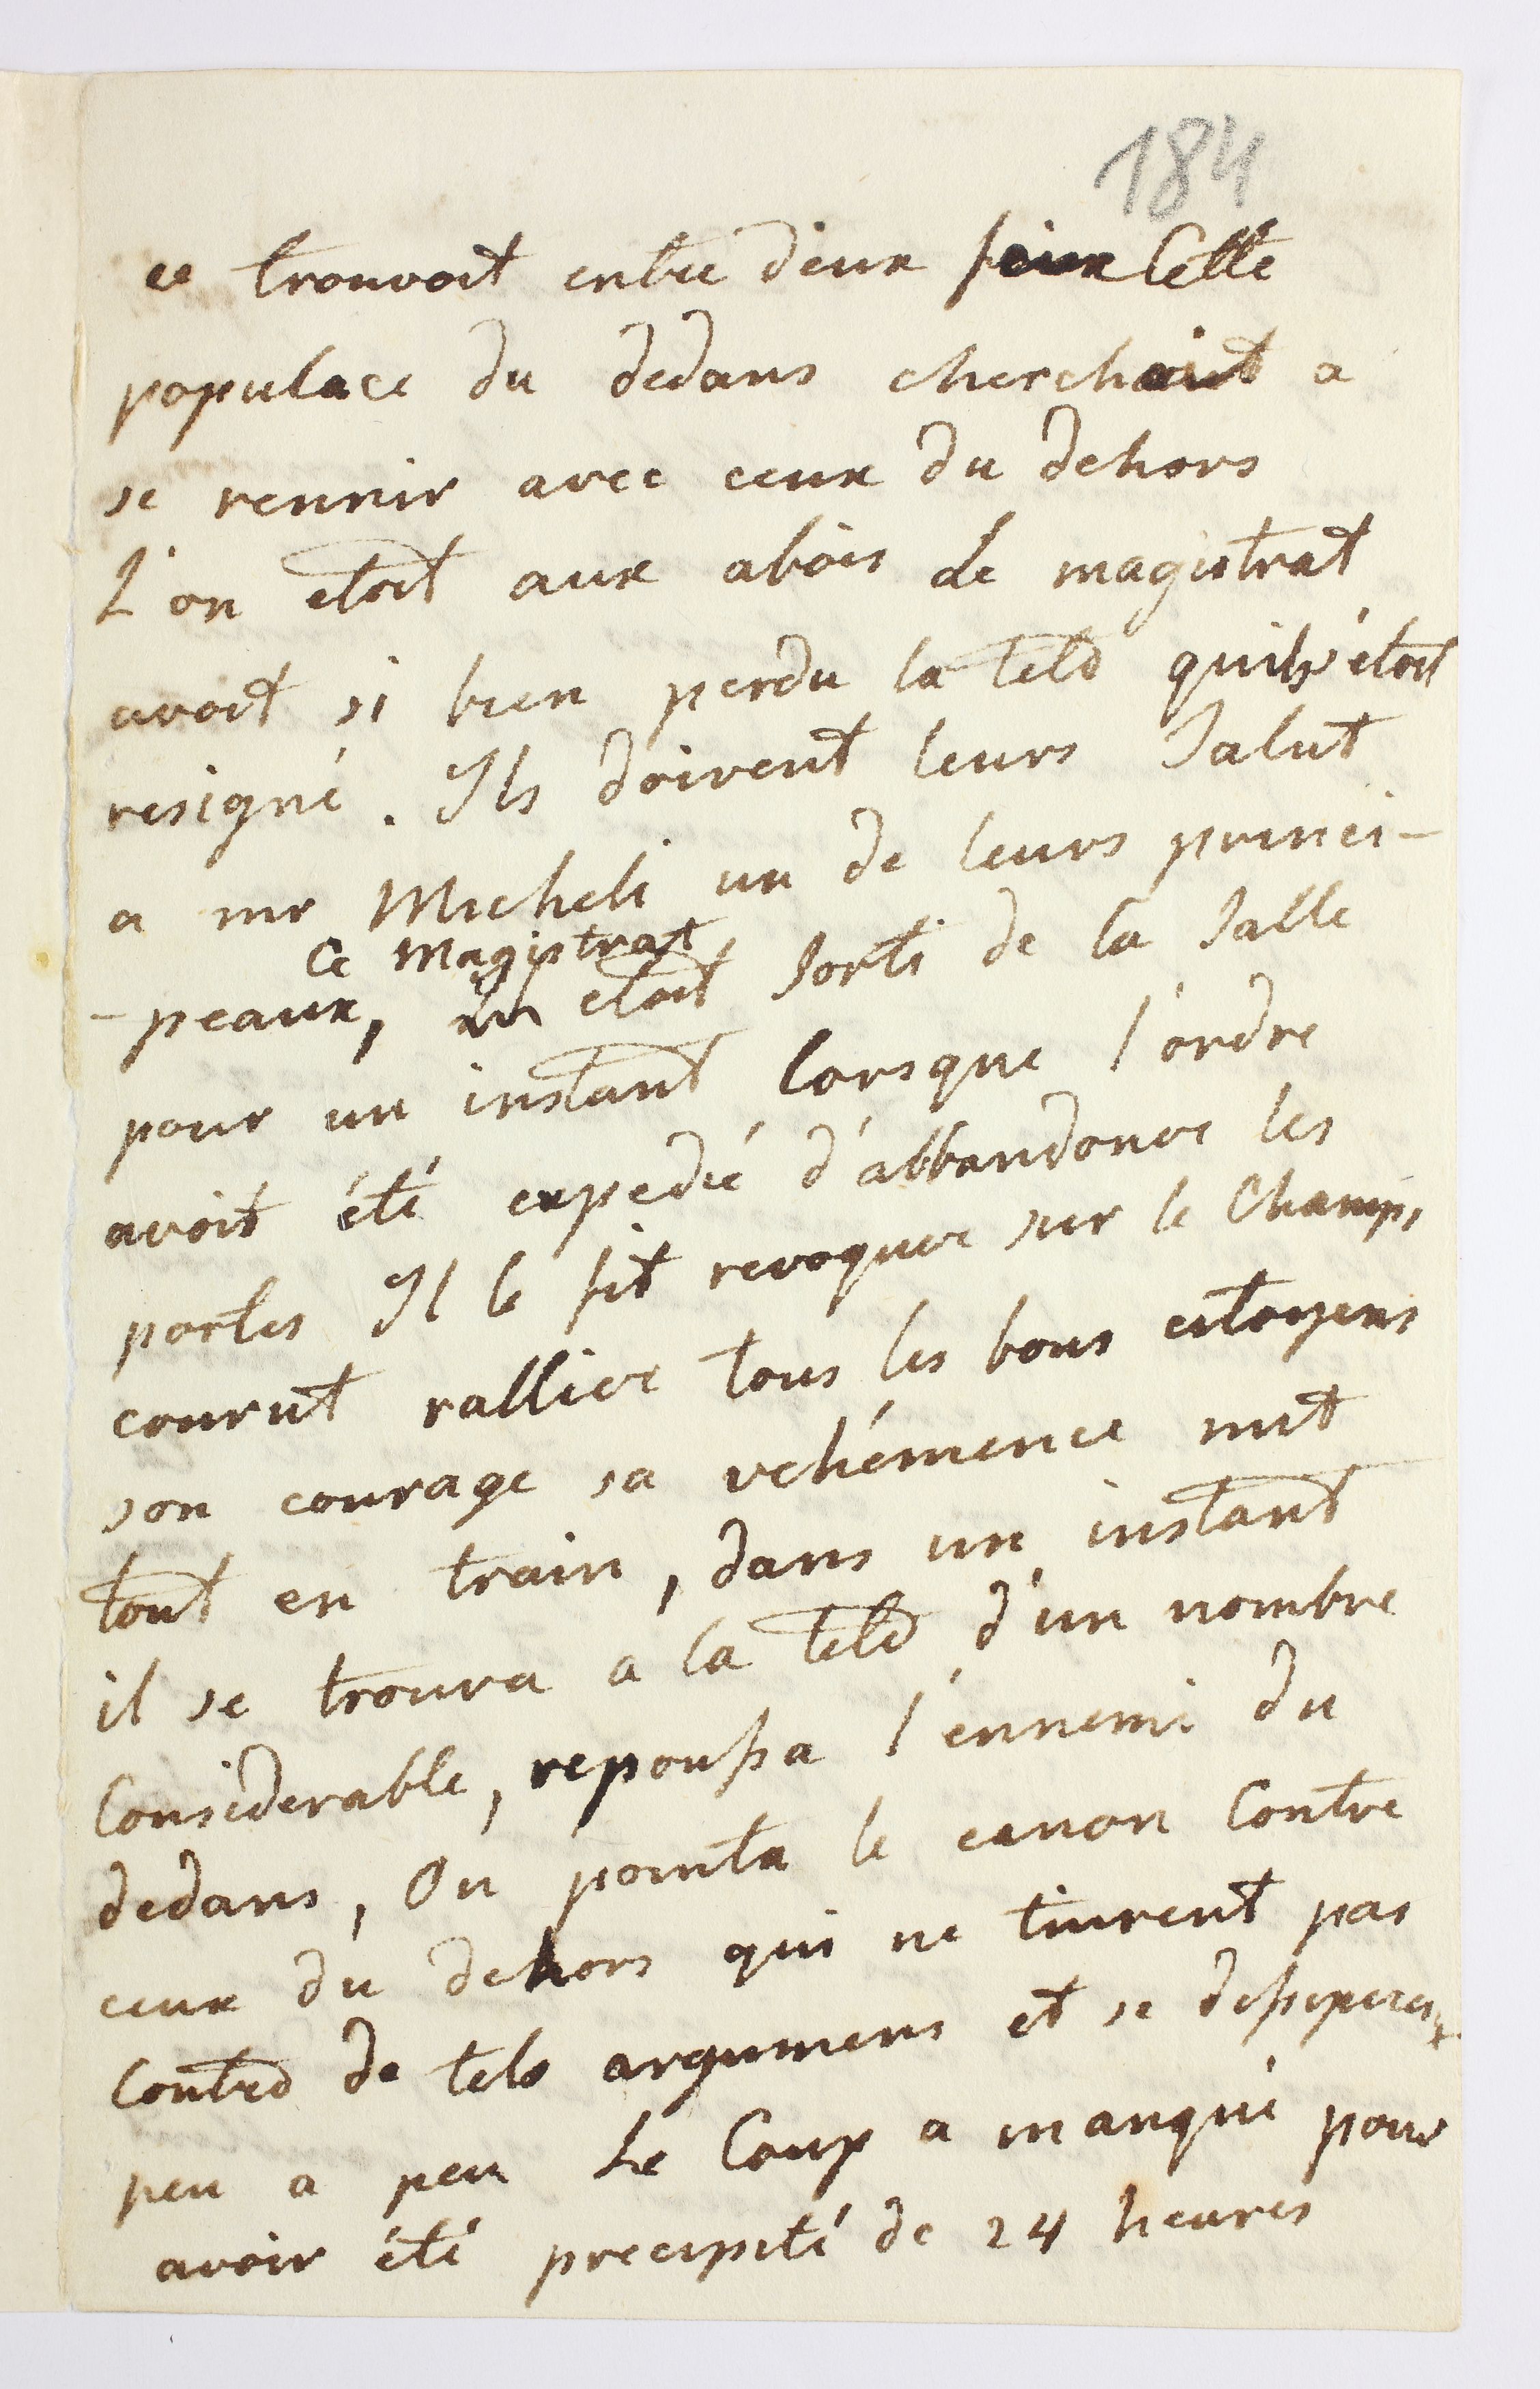 184
se trouvoit entre deux feux Cette
populace du dedans cherchoit a
se reunir avec ceux du dehors
L'on etoit aux abois le magistrat
avoit si bien perdu la tete quils'étoit
resigné. Ils doivent leurs Salut
a mr Micheli un de leurs princi-
Ce Magistrat
-peaux, etoit Sorti de la Salle
pour un instant lorsque l'ordre
avoit été expedié d'abbandoner les
portes Il le fit revoquer sur le Champ,
courut rallier tous les bons citoyens
son courage sa vehémence mit
tout en train, dans un instant
il se trouva a la tete d'un nombre
Considerable, repoussa l'ennemi du
dedans, On pointa le canon Contre
ceux du dehors qui ne tinrent pas
Contre de tels argumens et se dissiperent
peu a peu Le Coup a manqué pour
avoir été precipité de 24 heures